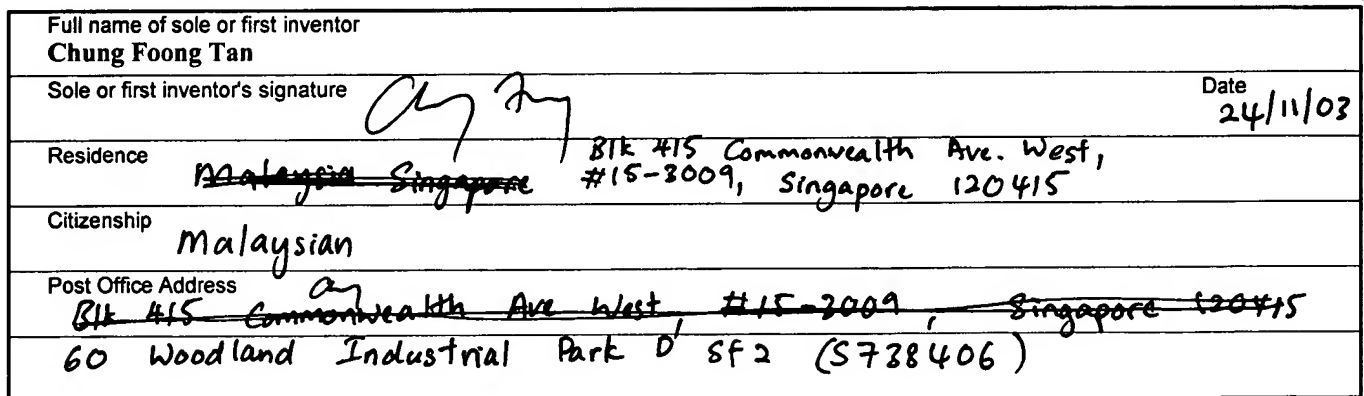 Full name of sole or first inventor
Chung Foong Tan
Sole or first inventor's signature
Date
24/11/03
Residence
Malaysia Singapore
Blk 415 Commonwealth Ave. West,
#15-3009, Singapore 120415
Citizenship
Malaysian
Post Office Address
Blk 415 Commonwealth Ave West, #15-3009, Singapore 120415
60 Woodland Industrial Park D, Sf2 (S738406)